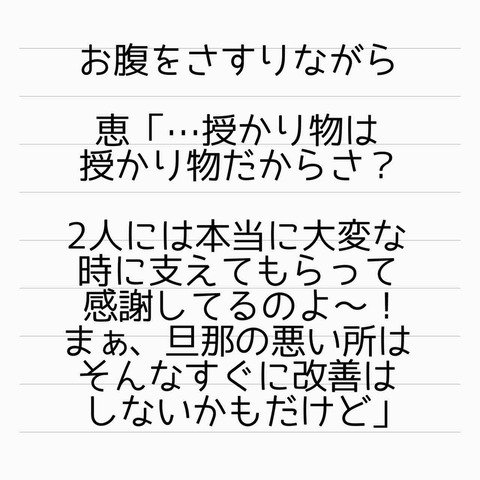 お腹をさすりながら
恵「…授かり物は
授かり物だからさ？
2人には本当に大変な
時に支えてもらって
感謝してるのよ〜！
まぁ、旦那の悪い所は
そんなすぐに改善は
しないかもだけど」